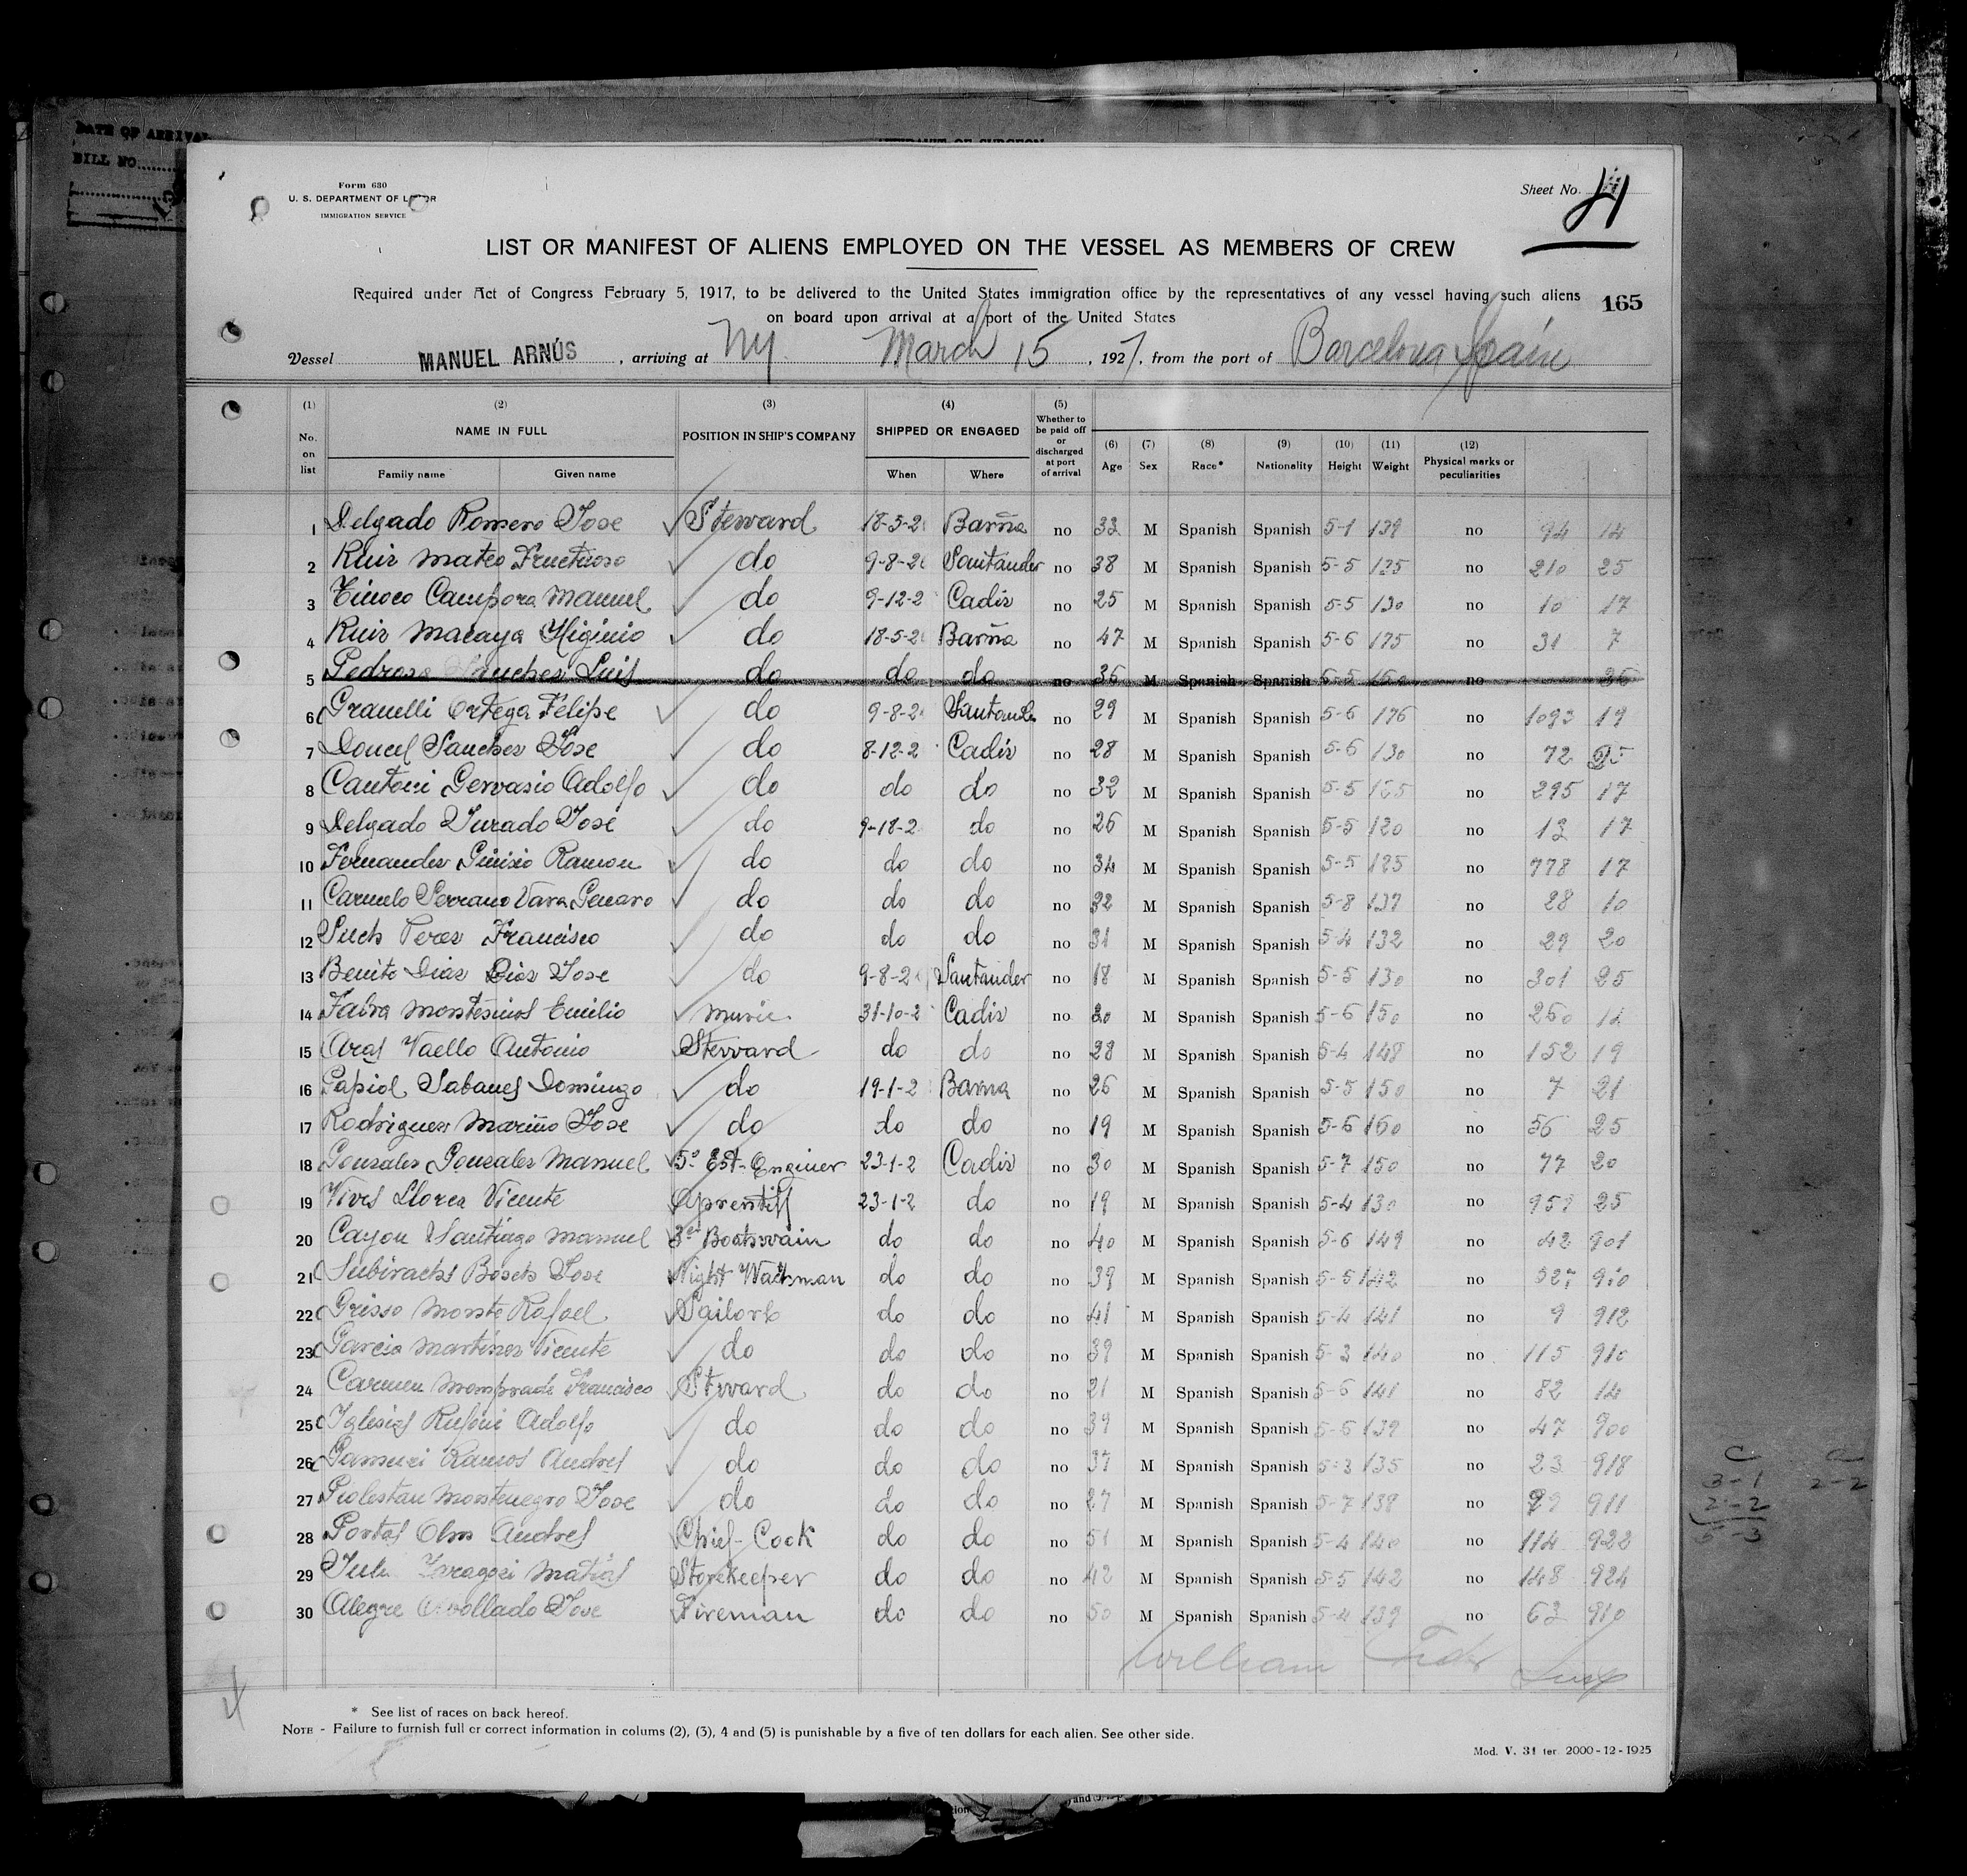 DATE OF ARRIVAL
BILL NO
Form 680
U. S. DEPARTMENT OF LABOR
IMMIGRATION SERVICE
Sheet No.
LIST OR MANIFEST OF ALIENS EMPLOYED ON THE VESSEL AS MEMBERS OF CREW
Required under Act of Congress February 5, 1917, to be delivered to the United States immigration office by the representatives of any vessel having such aliens
165
on board upon arrival at a port of the United States
Vessel MANUEL ARNÚS, arriving at Ny March 15, 1927, from the port of Barcelona Spain
(1) (2) (3) (4) (5)
No. on list NAME IN FULL POSITION IN SHIP'S COMPANY SHIPPED OR ENGAGED Whether to be paid off or discharged at port of arrival (6) Age (7) Sex (8) Race* (9) Nationality (10) Height (11) Weight (12) Physical marks or peculiarities
Family name Given name When Where
1 Delgado Romero Jose Steward 18-5-2 Barña no 33 M Spanish Spanish 5-1 139 no 94 14
2 Ruiz Mateo Fructuoso do 9-8-2 Santander no 38 M Spanish Spanish 5-5 125 no 210 25
3 Tinoco Campora Manuel do 9-12-2 Cadiz no 25 M Spanish Spanish 5-5 130 no 10 17
4 Ruiz Macaya Higinio do 18-5-2 Barña no 47 M Spanish Spanish 5-6 175 no 31 7
5 Pedrosa Sanchez Luis do do do no 36 M Spanish Spanish 5-5 150 no 36
6 Granelli Ortega Felipe do 9-8-2 Santander no 29 M Spanish Spanish 5-6 176 no 1093 19
7 Doncel Sanchez Jose do 8-12-2 Cadiz no 28 M Spanish Spanish 5-6 130 no 72
8 Cantoni Gervasio Adolfo do do do no 32 M Spanish Spanish 5-5 no 295 17
9 Delgado Jurado José do 9-18-2 do no 26 M Spanish Spanish 5-5 120 no 13 17
10 Fernandez Ramon do do do no 34 M Spanish Spanish 5-5 125 no 778 17
11 Carmelo Serrano Vara Genaro do do do no 32 M Spanish Spanish 5-8 137 no 28 10
12 Puch Perez Francisco do do do no 31 M Spanish Spanish 5-4 132 no 29 20
13 Benito Diaz Dios Jose do 9-8-2 Santander no 18 M Spanish Spanish 5-5 130 no 301 25
14 Fabra Montesinos Emilio music 31-10-2 Cadiz no 30 M Spanish Spanish 5-6 150 no 260
15 Aras Vaello Antonio Stervard do do no 28 M Spanish Spanish 5-4 148 no 152 19
16 Papiol Sabanes Domingo do 19-1-2 Barna no 26 M Spanish Spanish 5-5 150 no 7 21
17 Rodriguez Mariño Jose do do do no 19 M Spanish Spanish 5-6 160 no 56 25
18 Gonzales Gonzales Manuel 5º Est-Enginer 23-1-2 Cadiz no 30 M Spanish Spanish 5-7 150 no 77 20
19 Vives Llorca Vicente Aprentiss 23-1-2 do no 19 M Spanish Spanish 5-4 130 no 25
20 Cayon Santiago Manuel 3er Boatswain do do no 40 M Spanish Spanish 5-6 149 no 42 901
21 Subirachs Bosch Jose Night Watsman do do no 39 M Spanish Spanish 5-5 142 no 527 910
22 Grisso Monste Rafael Sailors do do no 41 M Spanish Spanish 5-4 141 no 9 912
23 Garcia Martinez Vicente do do do no 39 M Spanish Spanish 5-3 140 no 115 910
24 Carmen Momprade Francisco Stevard do do no 21 M Spanish Spanish 5-6 141 no 82 14
25 Iglesias Rufini Adolfo do do do no 39 M Spanish Spanish 5-6 139 no 47 900
26 Ramos Andres do do do no 37 M Spanish Spanish 5-3 135 no 23 918
27 Montenegro Jose do do do no 27 M Spanish Spanish 5-7 138 no 911
28 Portas Andres Chief-Cook do do no 51 M Spanish Spanish 5-4 140 no 114 922
29 Zaragozi Matias Storekeeper do do no 42 M Spanish Spanish 5-5 142 no 148 924
30 Alegre Jose Fireman do do no 50 M Spanish Spanish 5-4 139 no 63 910
William
* See list of races on back hereof.
NOTE - Failure to furnish full or correct information in colums (2), (3), 4 and (5) is punishable by a five of ten dollars for each alien. See other side.
Mod. V. 31 ter 2000-12-1925
C
3-1 2-2
2-2
5-3